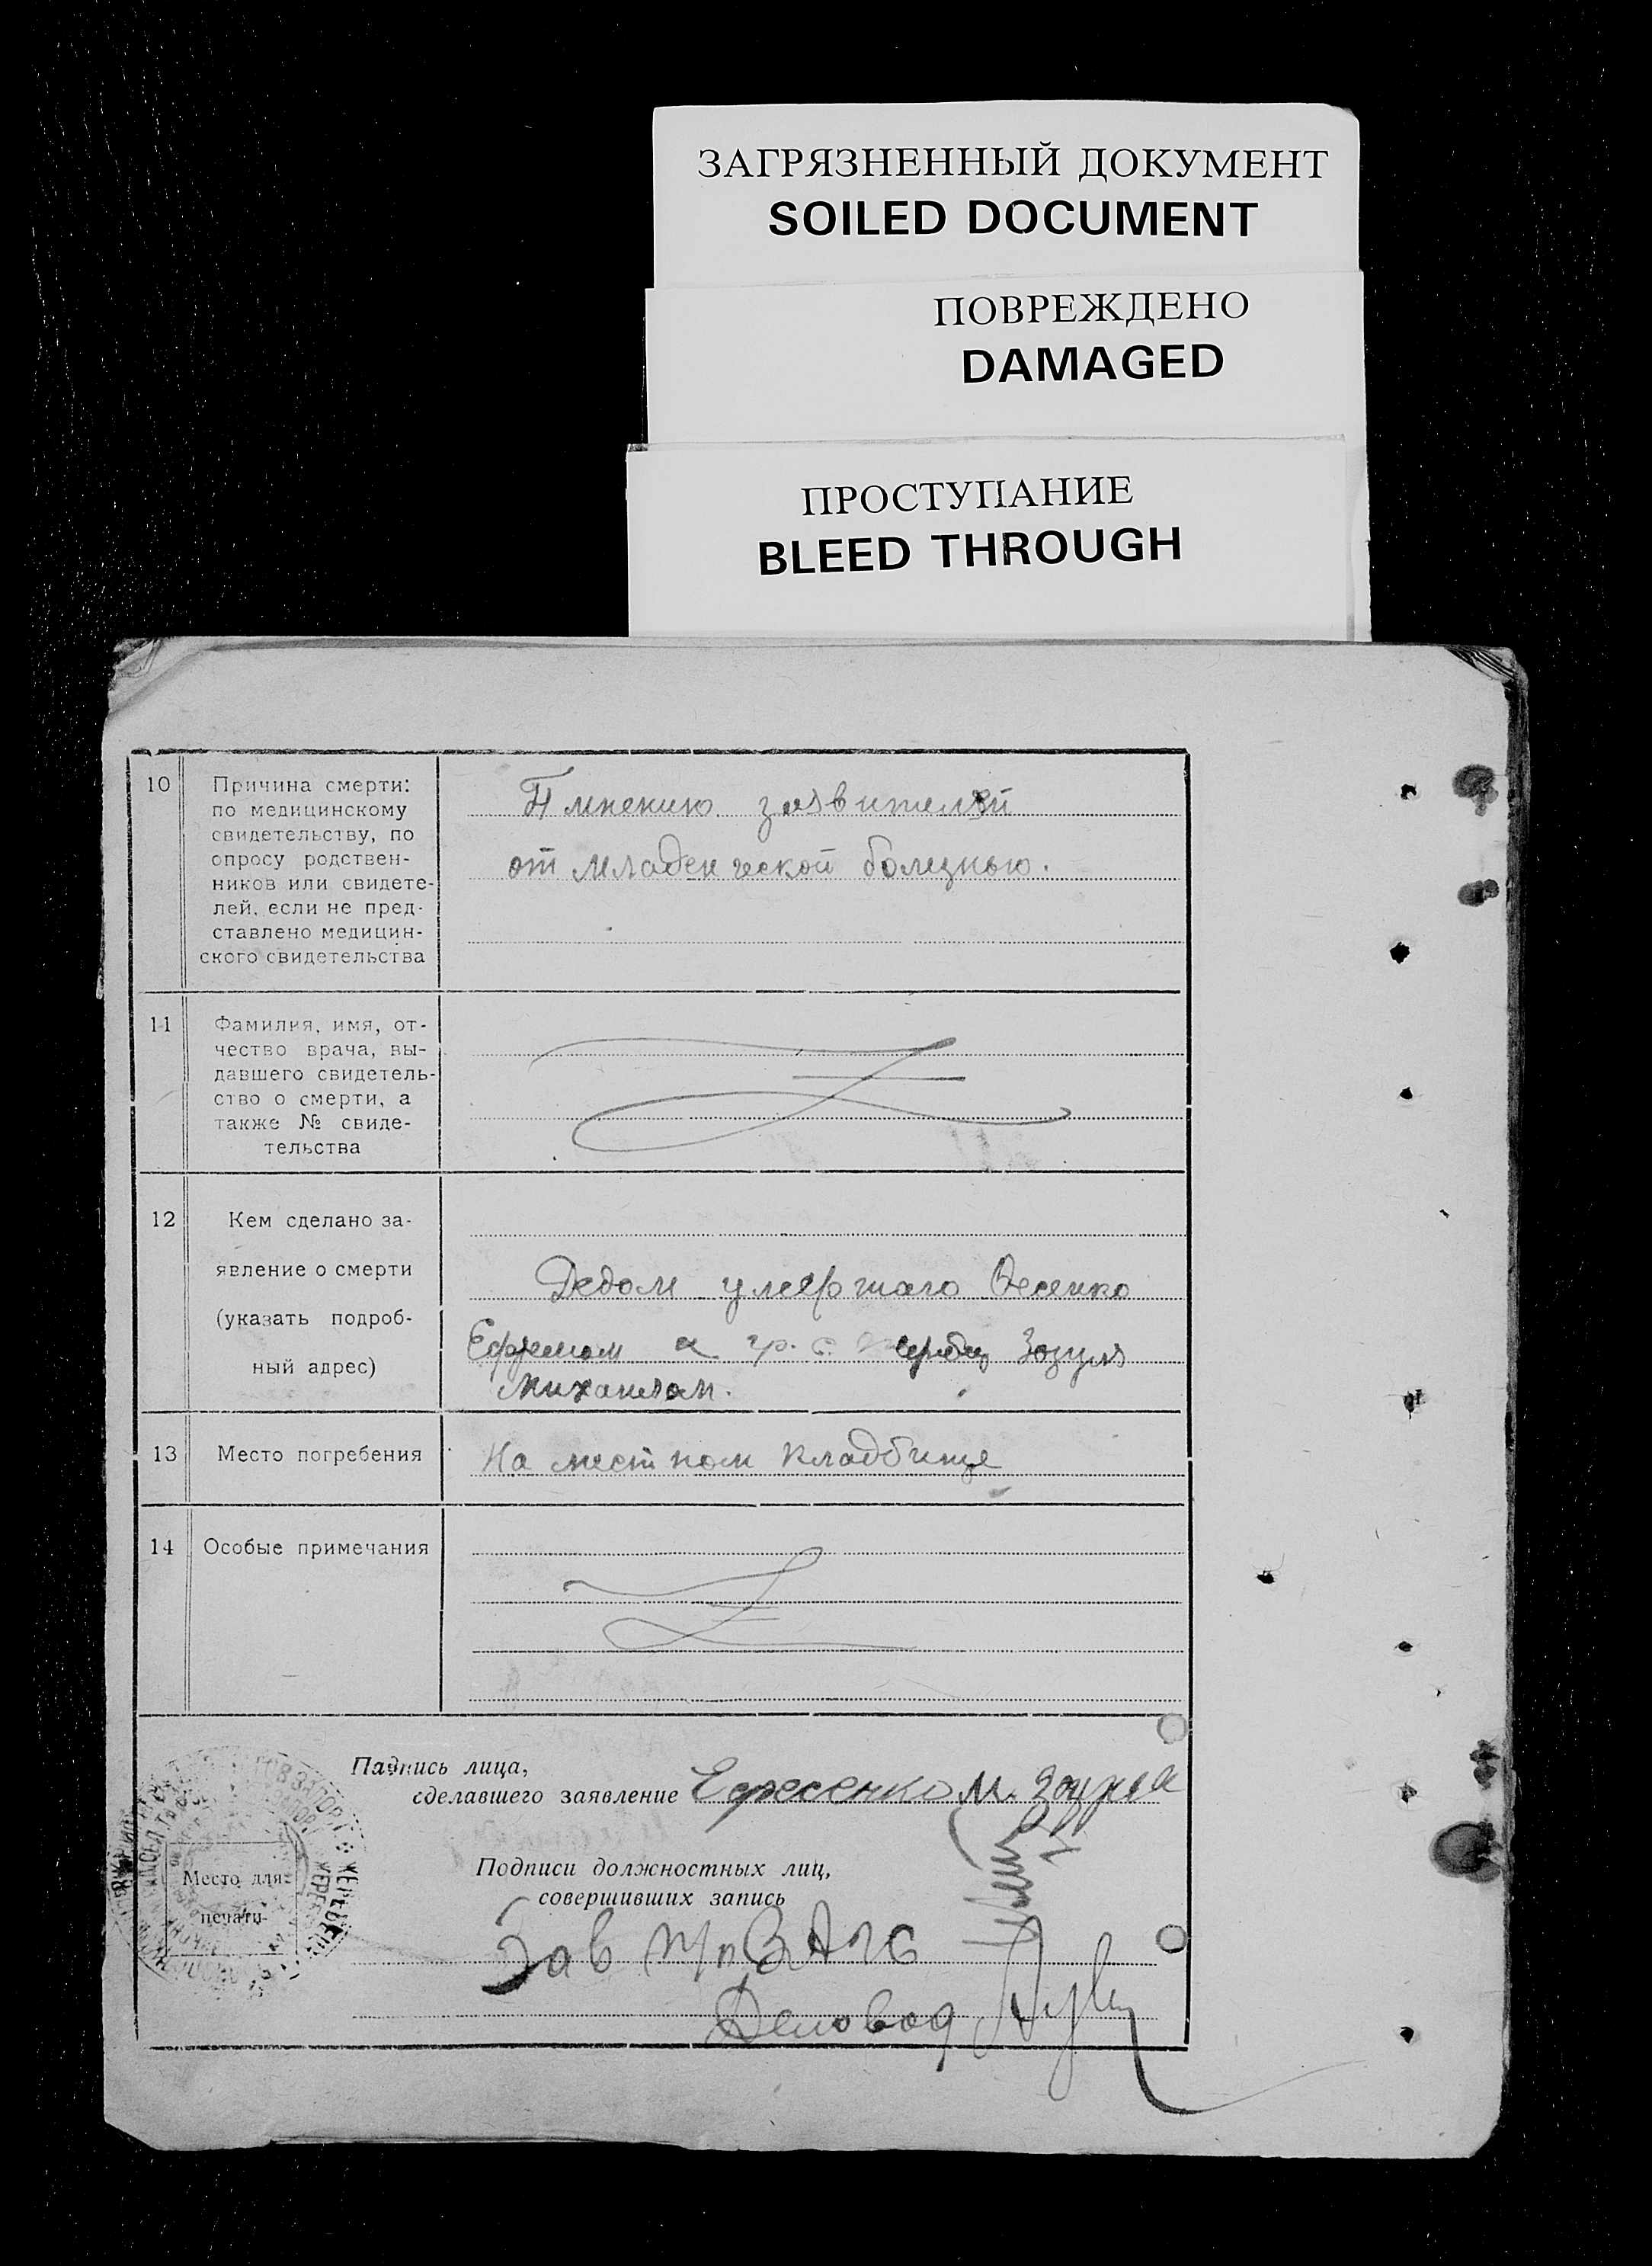 ЗАГРЯЗНЕННЫЙ ДОКУМЕНТ
SOILED DOCUMENT
ПОВРЕЖДЕНО
DAMAGED
ПРОСТУПАНИЕ
BLEED THROUGH
10
Причина смерти:
по медицинскому
свидетельству, по
опросу родствен-
ников или свидете-
лей, если не пред-
ставлено медицин-
ского свидетельства
П мнению заявителей
от младенческой болезнью.
11
Фамилия, имя, от-
чество врача, вы-
давшего свидетель-
ство о смерти, а
также № свиде-
тельства
12
Кем сделано за-
явление о смерти
(указать подроб-
ный адрес)
Дедом умершаго
Ефремом гр. с. Зозуля
Михаилом.
13
Место погребения
На местном кладбище
14
Особые примечания
Падпись лица,
сделавшего заявление М. Зозуля
Подписи должностных лиц,
совершивших запись
Место для
печати
Зав ЗАГС
Деловод